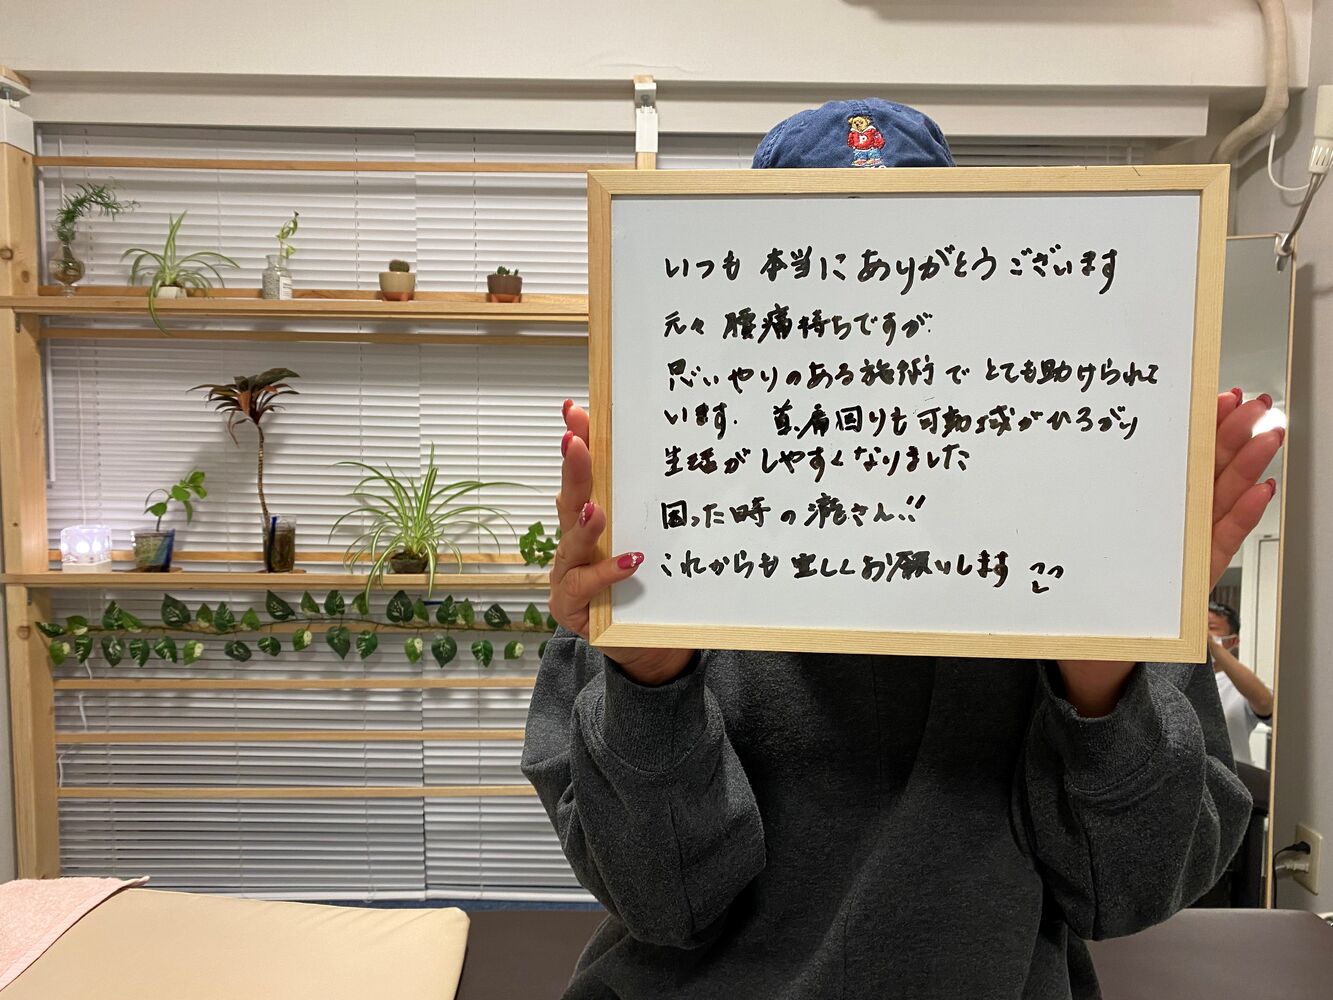 いつも 本当に ありがとうございます
元々 腰痛持ちですが
思いやりのある施術で とても助けられて
います. 首、肩回りも可動域がひろがり
生活がしやすくなりました
困った時の 滝さん!!
これからも 宜しくお願いします